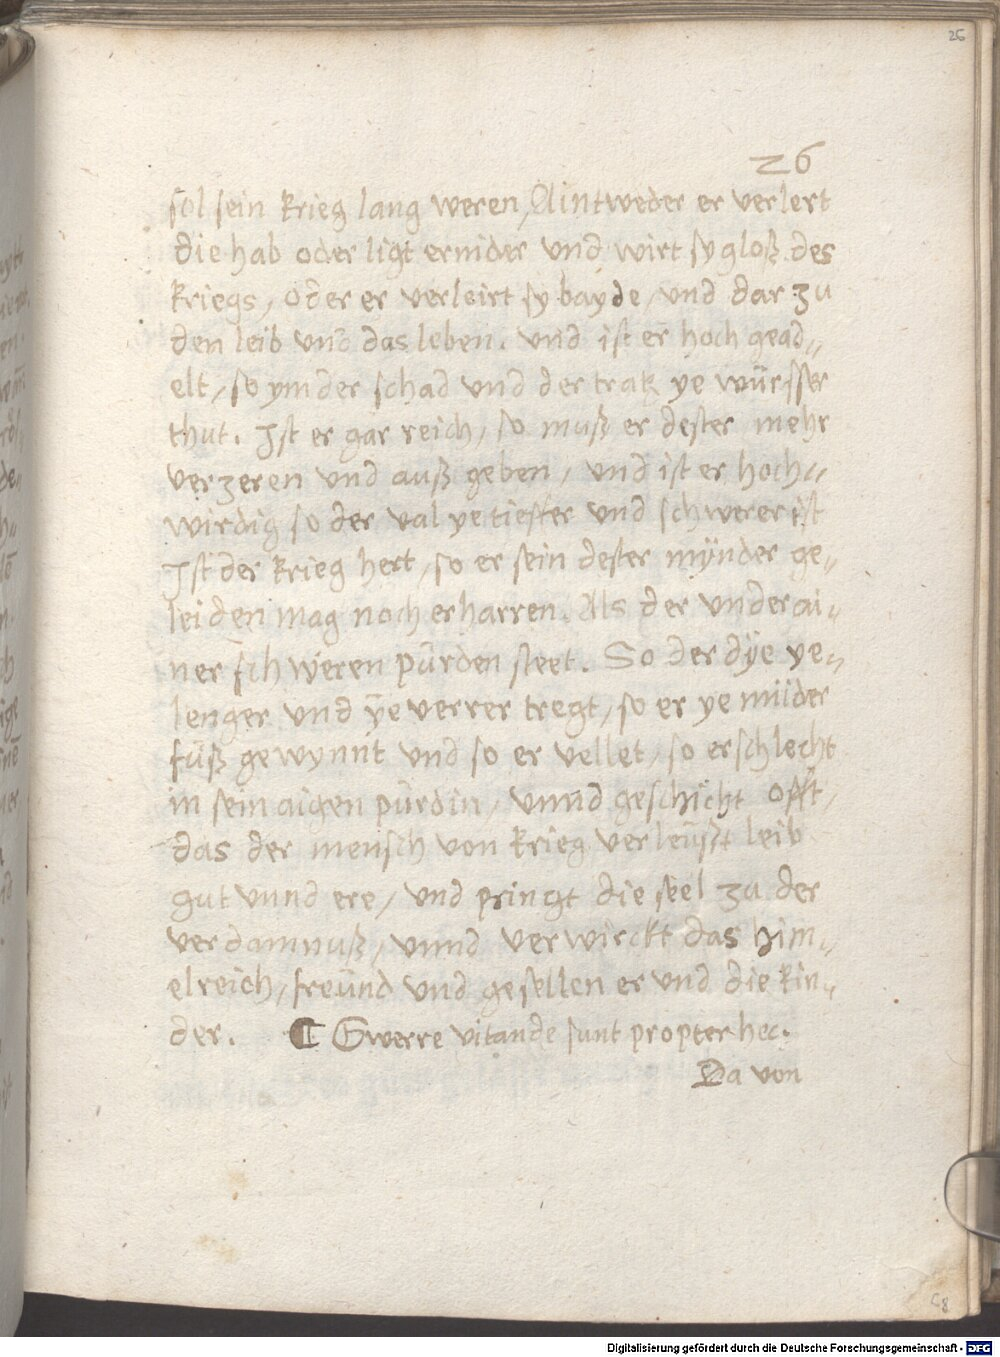 26
26
sol sein krieg lang weren, Aintweder er verlert
die hab oder ligt ernider und wirt sygloß des
kriegs, oder er verleirt sy bayde, und dar zu
den leib und das leben. Und ist er hoch gead„
elt, so ym der schad und der trak ye würsser
thut. Ist er gar reich, so muß er dester mehr
verzeren und auß geben, und ist er hoch„
wirdig so der val ye tieffer und schwerer ist
Ist der krieg hert, so er sein dester mÿnder ge„
leiden mag noch erharren. Als der under ai„
ner schweren pürden steet. So der dÿe ye„
lenger und ÿe verrer tregt, so er ye müder
füß gewynnt und so er vellet, so erschlecht
in sein aigen pürdin, unnd geschicht offt,
das der mensch von krieg verleüßt leib
gut unnd ere, und pringt die seel zu der
verdamnuß, unnd verwirckt das him„
elreich, freünd und gesellen er und die kin„
der. ¶ Gwerre vitande sunt propter hec.
Da von
C8
Digitalisierung gefördert durch die Deutsche Forschungsgemeinschaft - DFG